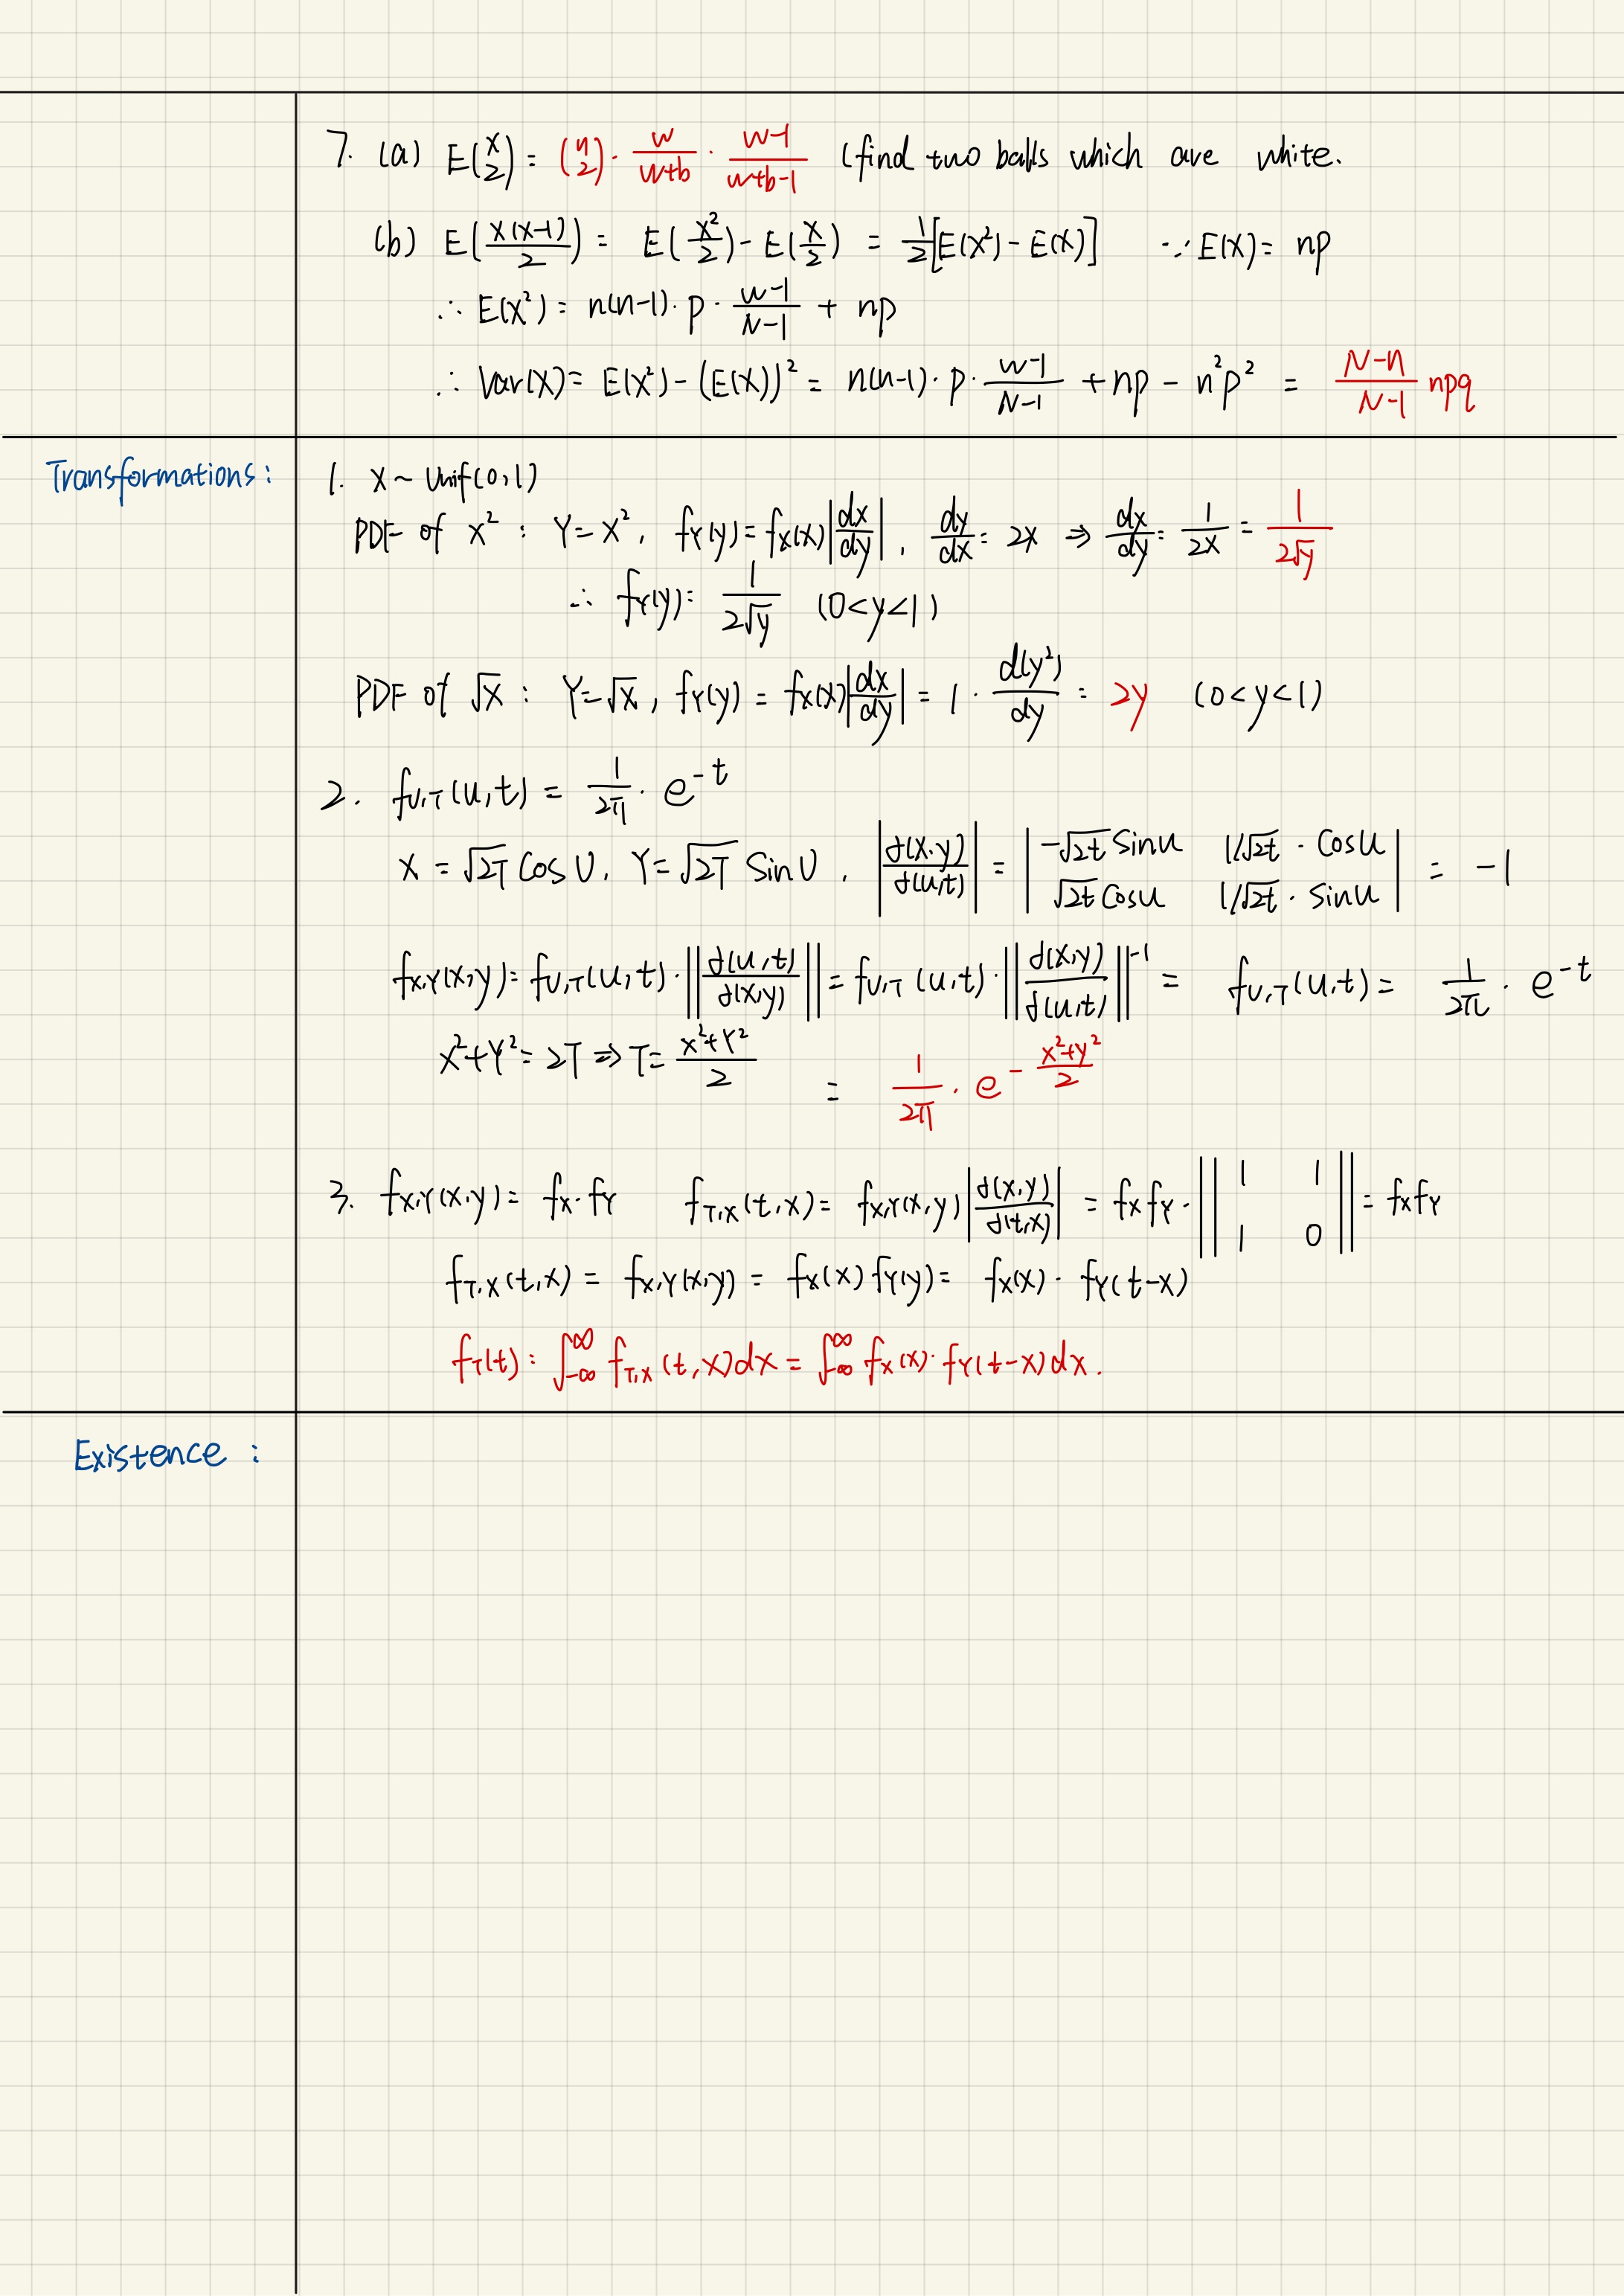 7. (a) E(X 2) = (n 2) · w/(w+b) · (w-1)/(w+b-1) (find two balls which are white.
(b) E(X(X-1)/2) = E(X²/2) - E(X/2) = 1/2[E(X²) - E(X)] ∵ E(X) = np
∴ E(X²) = n(n-1) · p · (w-1)/(N-1) + np
∴ Var(X) = E(X²) - (E(X))² = n(n-1) · p · (w-1)/(N-1) + np - n²p² = (N-n)/(N-1) npq
Transformations:
1. X ~ Unif(0,1)
PDF of X² : Y = X², fY(y) = fX(x)|dx/dy|, dy/dx = 2x ⇒ dx/dy = 1/2x = 1/2√y
∴ fY(y) = 1/2√y (0<y<1)
PDF of √X : Y = √X, fY(y) = fX(x)|dx/dy| = 1 · d(y²)/dy = 2y (0<y<1)
2. fU,T(u,t) = 1/2π · e^-t
X = √2T Cos U, Y = √2T Sin U, |∂(x,y)/∂(u,t)| = | -√2t Sin u 1/√2t · Cos u
√2t Cos u 1/√2t · Sin u | = -1
fX,Y(x,y) = fU,T(u,t) · ||∂(u,t)/∂(x,y)|| = fU,T(u,t) · ||∂(x,y)/∂(u,t)||^-1 = fU,T(u,t) = 1/2π · e^-t
X²+Y² = 2T ⇒ T = (X²+Y²)/2 = 1/2π · e^-(x²+y²)/2
3. fX,Y(x,y) = fX · fY fT,X(t,x) = fX,Y(x,y)|∂(x,y)/∂(t,x)| = fX fY · || 1 1
1 0 || = fX fY
fT,X(t,x) = fX,Y(x,y) = fX(x) fY(y) = fX(x) · fY(t-x)
fT(t) = ∫_-∞^∞ fT,X(t,x)dx = ∫_-∞^∞ fX(x) · fY(t-x)dx.
Existence :